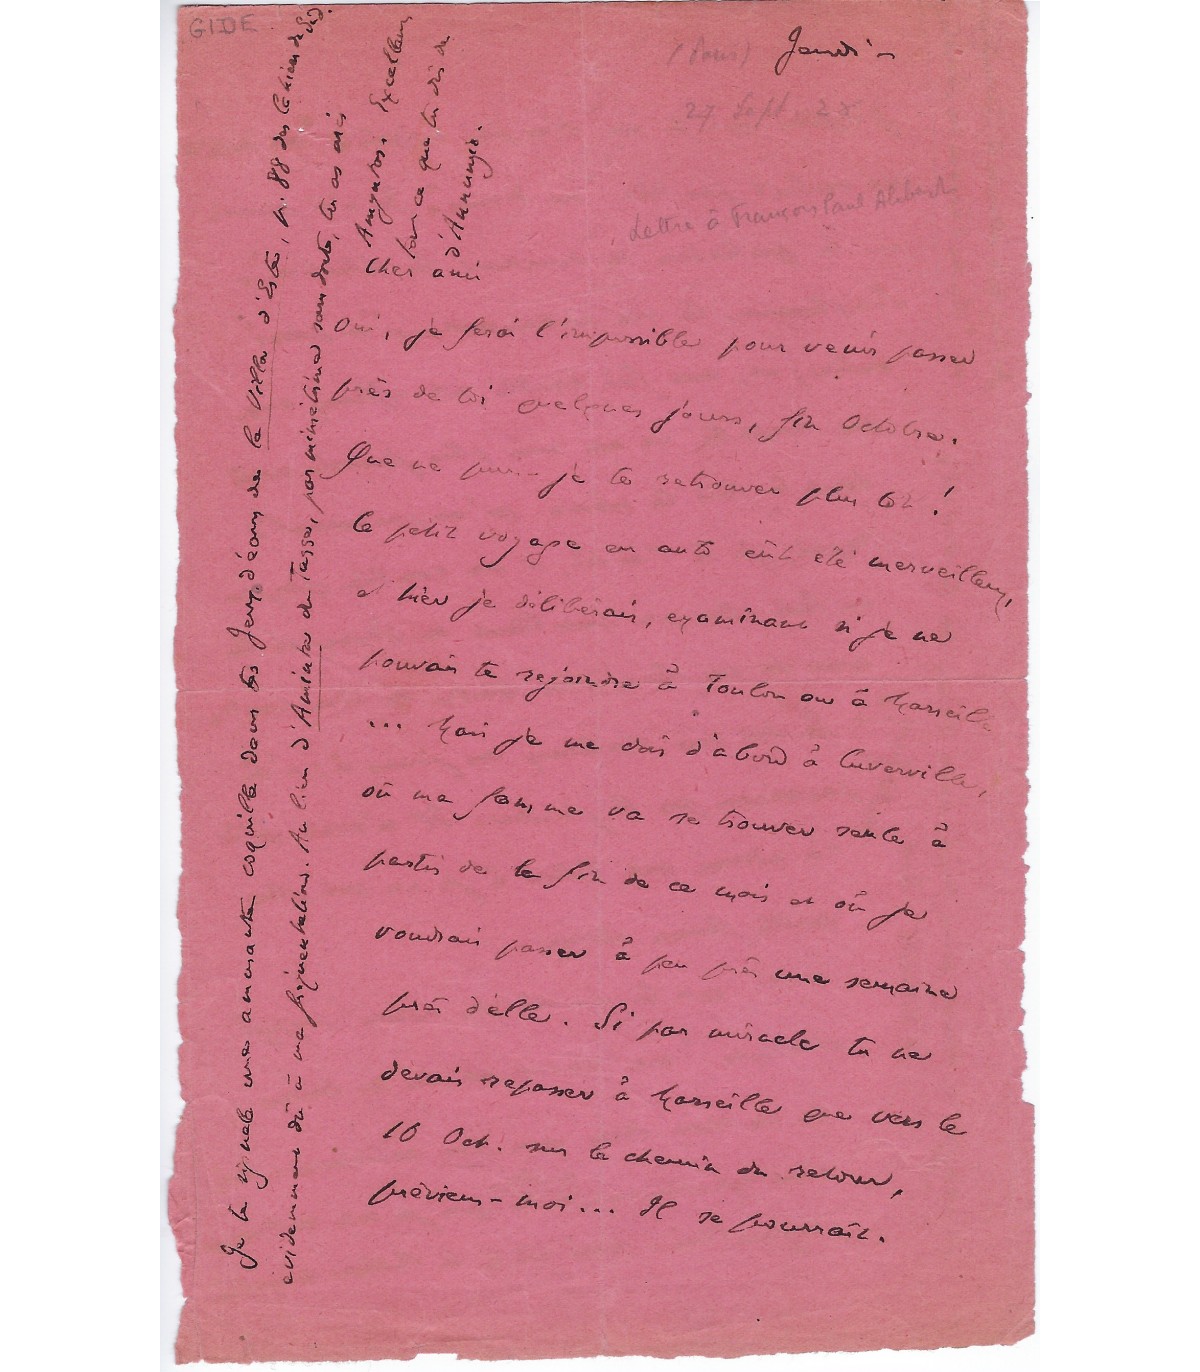 GIDE
Jeudi -
(Paris)
27 Sept. 28
Lettre à François Paul Alibert
Cher ami
Oui, je ferai l'impossible pour venir passer
près de toi quelques jours, fin Octobre.
Que ne puis-je te retrouver plus tôt !
Le petit voyage en auto eût été merveilleux,
et hier je délibérais, examinant si je ne
pouvais te rejoindre à Toulon ou à Marseille
... Mais je me dois d'abord à Cuverville,
où ma femme va se trouver seule à
partir de la fin de ce mois et où je
voudrais passer à peu près une semaine
près d'elle. Si par miracle tu ne
devais repasser à Marseille que vers le
10 Oct. sur le chemin du retour,
préviens-moi... Il se pourrait.
Je te signale une amusante coquille dans tes Jeux d'eaux de la Villa d'Este, p. 88 des Cahiers du Sud.
évidemment dû à ma fréquentation. Au lieu d'Aminta du Tasse, par mimétisme sans doute, tu as mis
Amyntas. Excellent
tout ce que tu dis de
d'Annunzio.